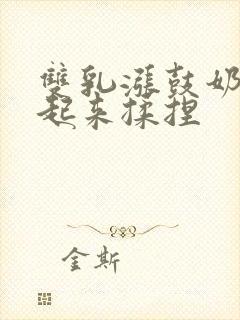 雙乳漲鼓奶
起来揉捏
金斯